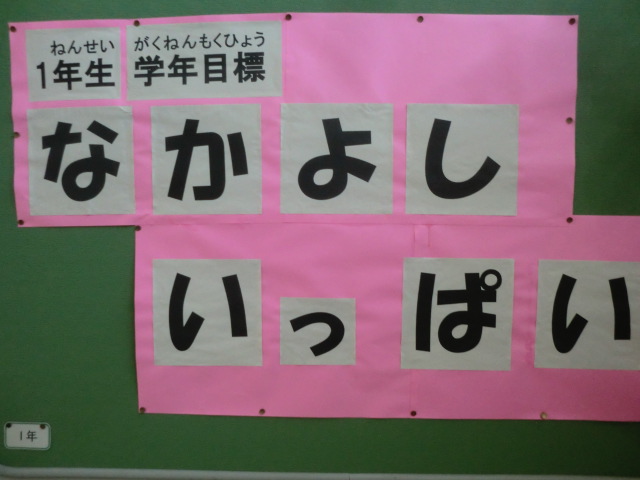 ねんせい がくねんもくひょう
1年生 学年目標
なかよし
いっぱい
1年